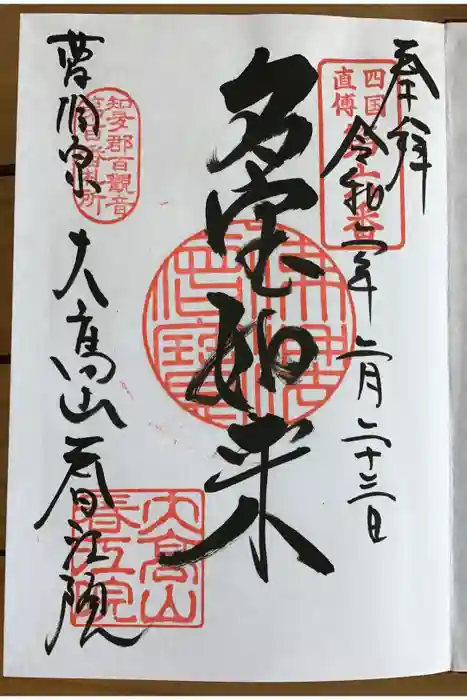 奉拝
令和二年二月二十三日
四国
直傳
多宝如来
曹洞宗
大高山 春江院
知多郡百觀音
大高山
春江院